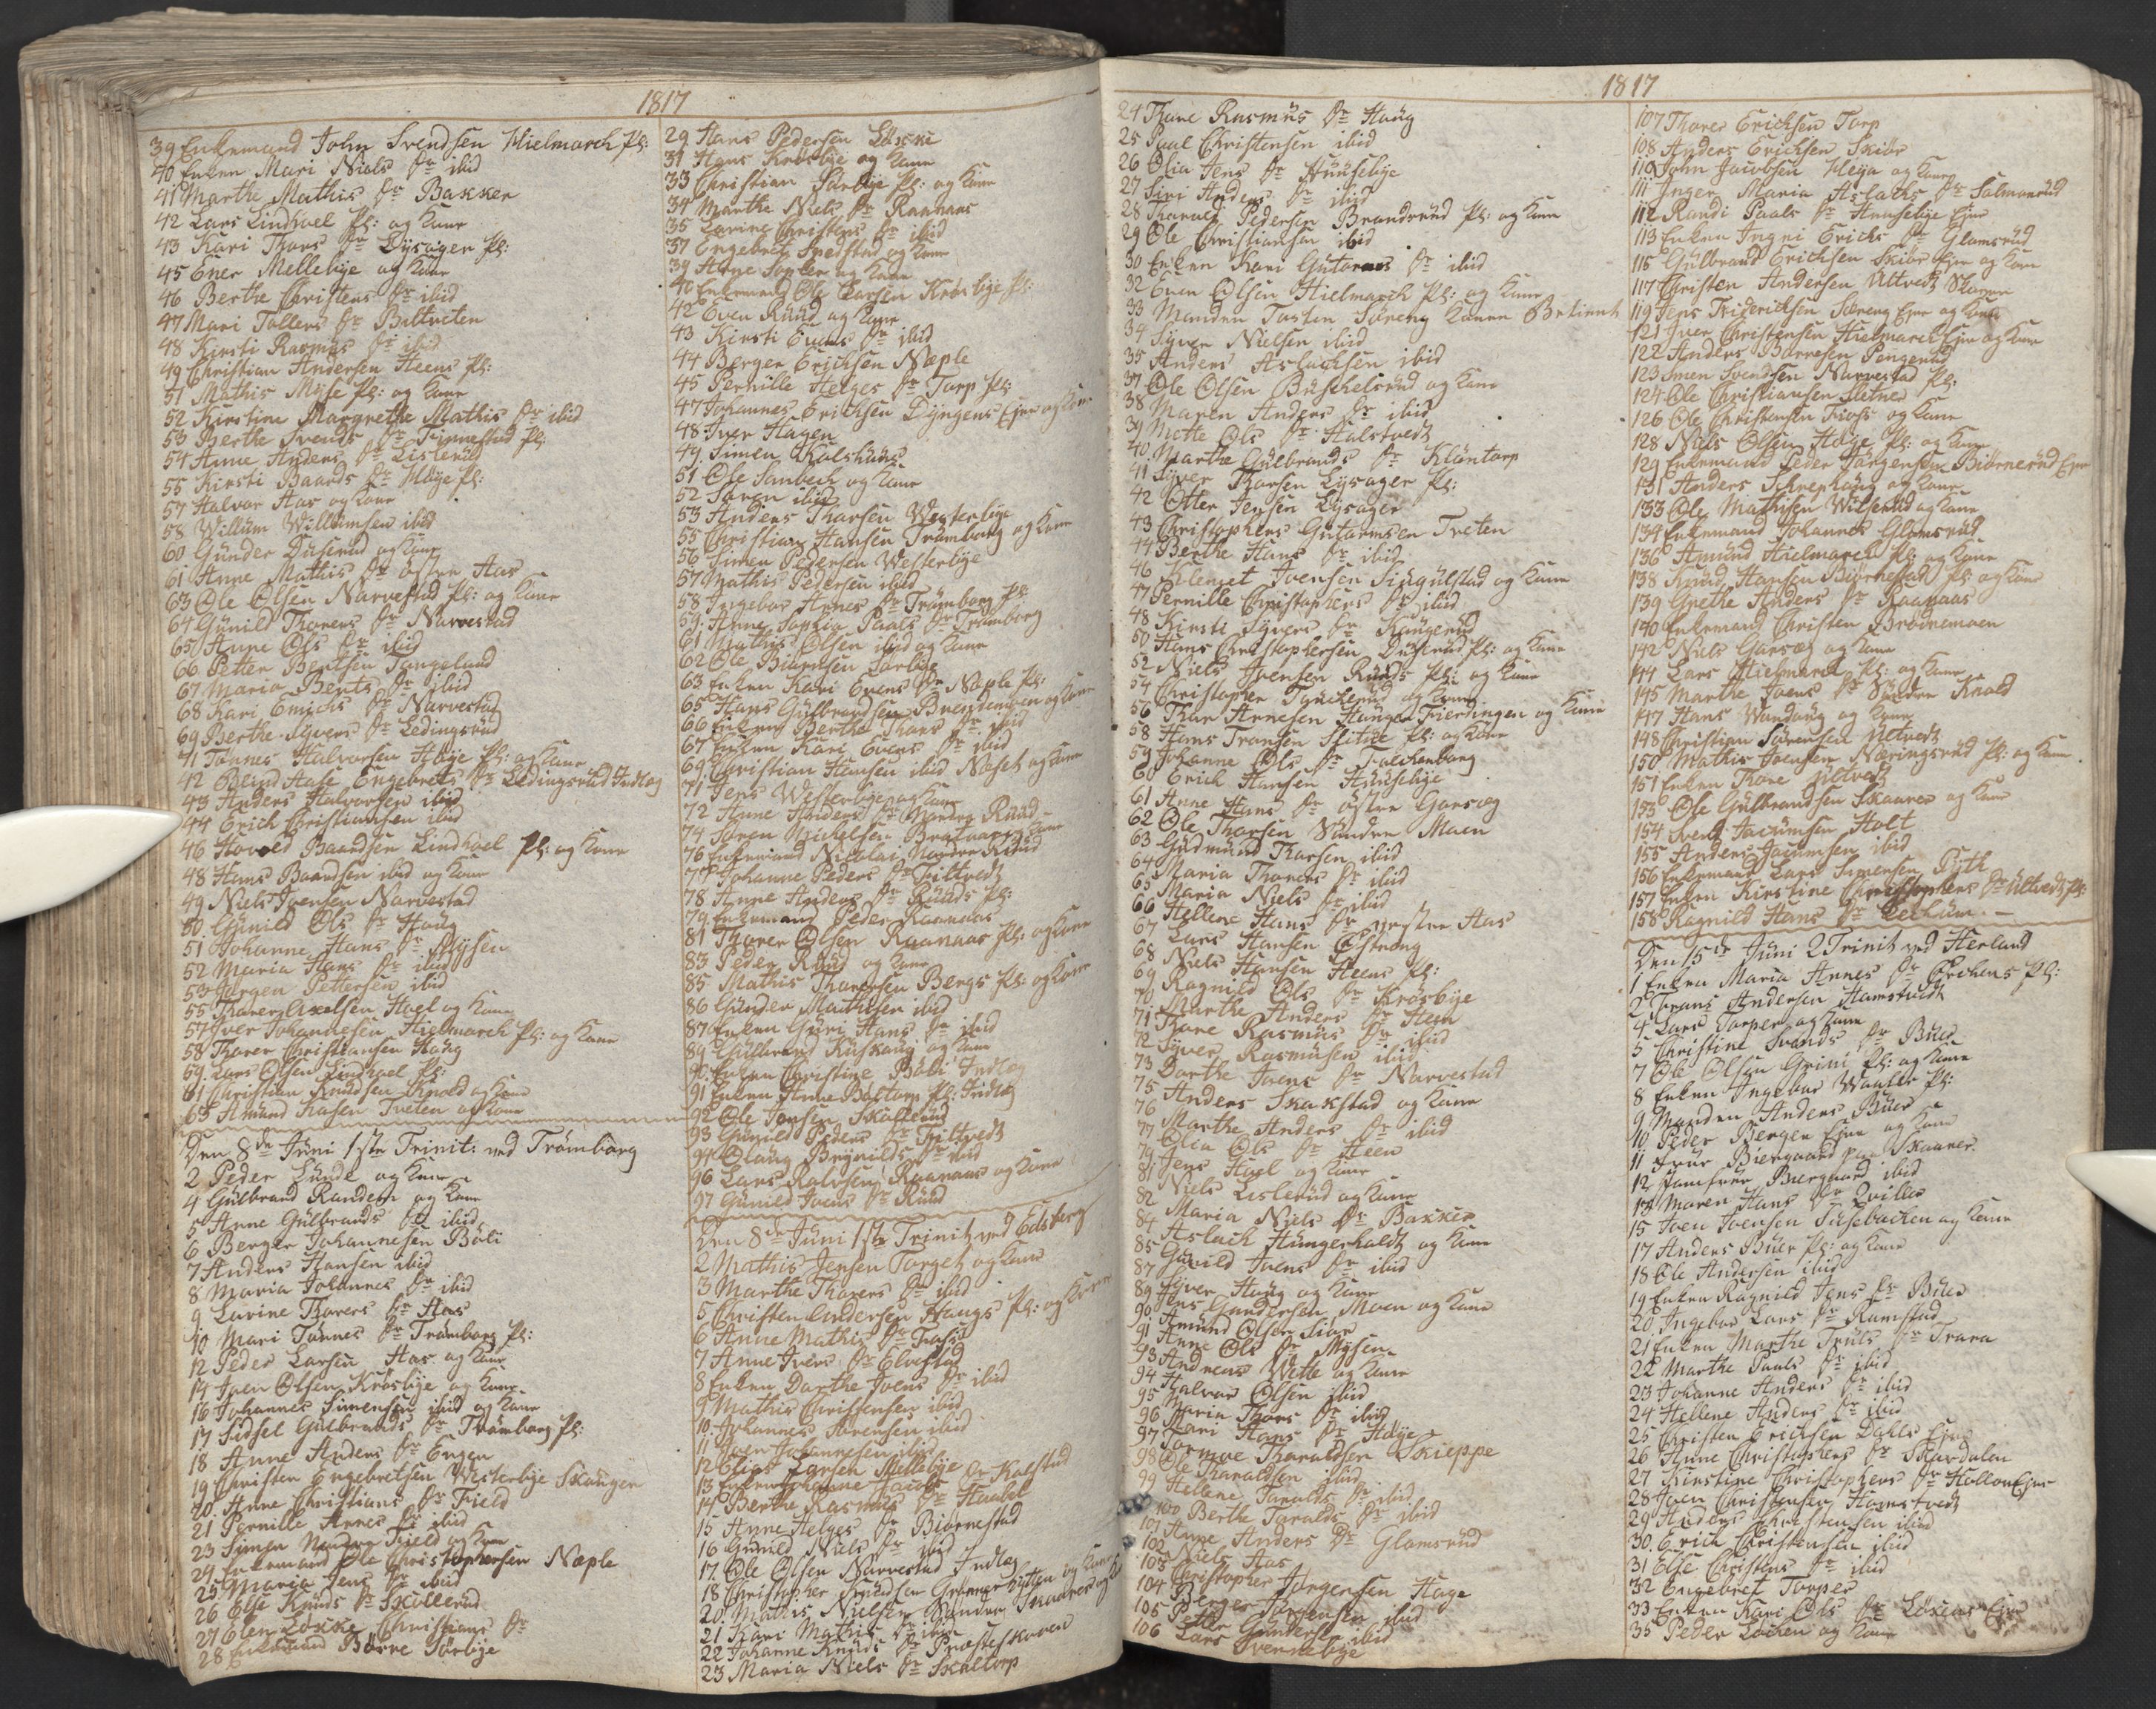 1817
39 Enkemand John Svendsen Hielmarch Pl:
40 Enken Mari Niels Dr ibid
41 Marthe Mathis Dr Bakken
42 Lars Lindhoel Pl: og Kone
43 Kari Thors Dr Lysager Pl:
45 Ener Mellebye og Kone
46 Berthe Christens Dr ibid
47 Mari Tollevs Dr Bittveten
48 Kirsti Rasmus Dr ibid
49 Christian Andersen Heens Pl:
51 Mathis Myse Pl: og Kone
52 Kirstine Margrethe Mathis Dr ibid
53 Berthe Svends Dr Finnestad Pl:
54 Anne Anders Dr Lislerud
55 Kirsti Baards Dr Høye Pl:
57 Halvor Aas og Kone
58 Willum Willumsen ibid
60 Gunder Duserud og Kone
61 Anne Mathis Dr østre Aas
63 Ole Olsen Narvestad Pl: og Kone
64 Gunild Thorers Dr Narvestad
65 Anne Ols Dr ibid
66 Petter Bentsen Tangelund
67 Maria Bents Dr ibid
68 Kari Emichs Dr Narvestad
69 Berthe Syvers Dr Ledingsrud
41 Tønnes Halvorsen Høye Pl: og Kone
42 Engebrets Dr Ledingsrud Indlæg
43 Anders Halvorsen ibid
44 Erich Christiansen ibid
46 Hovold Baardsen Lindhoel Pl: og Kone
48 Hans Baardsen ibid og Kone
49 Niels Joensen Narvestad
50 Gunild Ols Dr Houg
51 Johanne Hans Dr Mysen
52 Maria Hans Dr ibid
53 Jørgen Pettersen ibid
55 Thorer Axelsen Hoel og Kone
57 Iver Johannesen Hielmarch Pl: og Kone
58 Thorer Christiansen Houg
59 Lars Olsen Lindhoel Pl:
61 Christian Knudsen Knold og Kone
63 Amund Hasen Tveten og Kone
Den 8de Juni 1ste Trinit: ved Trømborg
2 Peder Lunde og Kone
4 Gulbrand Randem og Kone
5 Anne Gulbrands Dr ibid
6 Berger Johannesen Bøli
7 Anders Hansen ibid
8 Maria Johannes Dr ibid
9 Lavine Thorers Dr Aas
10 Mari Tønnes Dr Trømborg Pl:
12 Peder Larsen Aas og Kone
14 Joen Olsen Krosbye og Kone
16 Johannes Simensen ibid og Kone
17 Sidsel Gulbrands Dr Trømborg Pl:
18 Anne Anders Dr Engen
19 Christen Engebretsen Westerbye Skougen
20 Anne Christians Dr Field
21 Pernille Arnes Dr ibid
23 Simen Nordre Field og Kone
24 Enkemand Ole Christophersen Næple
25 Maria Jens Dr ibid
26 Else Knuds Dr Skollerud
27 Elen Løkke Christians Dr
28 Enkemand Børre Sørbye
29 Hans Pedersen Løkke
31 Hans Krosbye og Kone
33 Christian Sørbye Pl: og Kone
34 Marthe Niels Dr Raanaas
35 Karine Christens Dr ibid
37 Engebret Spedstad og Kone
39 Arne Sopler og Kone
40 Enkemand Ole Larsen Krosbye Pl:
42 Even Ruud og Kone
43 Kirsti Evens Dr ibid
44 Berger Erichsen Næple
45 Pernille Helges Dr Torp Pl:
47 Johannes Erichsen Dyngens Ejer og Kone
48 Iver Hagen
49 Simen Kolshuus
51 Ole Sanbech og Kone
52 Søren ibid
53 Anders Thorsen Westerbye
55 Christian Hansen Trømborg og Kone
56 Simen Pedersen Westerbye
57 Mathis Pedersen ibid
58 Ingebor Arnes Dr Trømborg Pl:
59 Anne Sophia Paals Dr Trømborg
61 Mathis Olsen ibid og Kone
62 Ole Biørnsen Sørbye
63 Enken Kari Evens Dr Næple Pl:
65 Hans Gulbrandsen Brendemoen og Kone
66 Enken Berthe Thors Dr ibid
67 Enken Kari Evens Dr ibid
69 Christian Hansen ibid Næset og Kone
71 Jens Westerbye og Kone
72 Anne Anders Dr Nordre Ruud
74 Søren Michelsen og Kone
76 Enkemand Nicolai Nordre Ruud
77 Johanne Peders Dr Tiltvedt
78 Anne Anders Dr Ruuds Pl:
79 Enkemand Peder Raanaas
81 Thorer Olsen Raanaas Pl: og Kone
83 Peder Ruud og Kone
85 Mathis Thorersen Bergs Pl: og Kone
86 Gunder Mathisen ibid
87 Enken Guri Hans Dr ibid
89 Gulbrand Kuskoug og Kone
90 Enken Christine Bøli Indlæg
91 Enken Anne Bøstorp Pl: Indlæg
92 Ole Jensen Skollerud
93 Gunild Peders Dr Tiltvedt
94 Olaug Brynilds Dr ibid
96 Lars Rolvsen Raanaas og Kone
97 Gunild Joens Dr Ruud
Den 8de Juni 1ste Trinit ved Edsberg
2 Mathis Jensen Torget og Kone
3 Marthe Thorers Dr ibid
5 Christen Andersen Hougs Pl: og Kone
6 Anne Mathis Dr Fraf
7 Anne Ivers Dr Elvestad
8 Enken Dorthe Joens Dr ibid
9 Mathis Christensen ibid
10 Johannes Sørensen ibid
11 Joen Johannesen ibid
12 Elias Larsen Mellebye
13 Enken Johanne Jacobs Dr Kolstad
14 Berthe Rasmus Dr Haabøl
15 Anne Helges Dr Biørnestad
16 Gunild Niels Dr ibid
17 Ole Olsen Narvestad Indlæg
18 Christopher Knudsen og Kone
20 Mathis Nielsen Søndre Skaarer og
21 Kari Mathis Dr ibid
22 Johanne Knuds Dr Præsteskoven
23 Maria Niels Dr Skaltorp
1817
24 Thore Rasmus Dr Houg
25 Paal Christensen ibid
26 Olia Jens Dr Huuselbye
27 Siri Anders Dr ibid
28 Thorald Pedersen Brandsrud Pl: og Kone
29 Ole Christiansen ibid
30 Enken Kari Gutorms Dr ibid
32 Even Olsen Hielmarch Pl: og Kone
33 Manden Tosten Søreng Konen Betient
34 Syver Nielsen ibid
35 Anders Aslachsen ibid
37 Ole Olsen Buskelsrud og Kone
38 Maren Anders Dr ibid
39 Mette Ols Dr Halstvedt
40 Marthe Gulbrands Dr Kløntorp
41 Syver Thorsen Lysager Pl:
42 Otter Jensen Lysager
43 Christophers Gutormsen Tveten
44 Berthe Hans Dr ibid
46 Klemet Joensen Singulstad og Kone
47 Pernille Christophers Dr ibid
48 Kirsti Syvers Dr Kougerud
50 Hans Christophersen Duserud Pl: og Kone
52 Niels Joensen Ruuds Pl: og Kone
54 Christopher og Kone
56 Thor Arnesen Haugen Fierdingen og Kone
58 Hans Fransen Slitue Pl: og Kone
59 Johanne Ols Dr Falchenborg
60 Erich Hansen Huuselbye
61 Anne Hans Dr østre Gorseg
62 Ole Thorsen Søndre Moen
63 Gudmund Thorsen ibid
64 Maria Thorers Dr ibid
65 Maria Niels Dr ibid
66 Hellene Hans Dr vestre Aas
67 Lars Hansen Østreng
68 Niels Hansen Heens Pl:
69 Ragnild Ols Dr Krosbye
70 Marthe Anders Dr Heen
71 Thore Rasmus Dr ibid
72 Syver Rasmusen ibid
73 Dorthe Joens Dr Narvestad
75 Anders Skakstad og Kone
76 Marthe Anders Dr ibid
77 Olia Ols Dr Heen
79 Jens Hoel og Kone
81 Niels Lislerud og Kone
82 Maria Niels Dr Bakker
84 Aslach Hungerholdt og Kone
85 Gunild Joens Dr ibid
87 Syver Houg og Kone
89 Jens Gundersen Moen og Kone
90 Amund Olsen Siør
91 Anne Ols Dr Mysen
93 Andreas Wette og Kone
94 Halvor Olsen ibid
95 Maria Thors Dr ibid
96 Kari Hans Dr Høye
97 Thoraldsen Skieppe
98 Ole Thoraldsen ibid
99 Hellene Toralds Dr ibid
100 Berthe Toralds Dr ibid
101 Anne Anders Dr Glomsrud
102 Niels Aas
103 Christopher Jørgensen Hage
104 Berger Jørgensen ibid
105 Peder Gundersen ibid
106 Lars Svennebye
107 Thorer Erichsen Torp
108 Anders Erichsen Skibr
110 John Jacobsen Høye og Kone
111 Inger Maria Aslachs Dr Salmonrud
112 Randi Paals Dr Huuselbye Ejer
113 Enken Ingri Erichs Dr Glomsrud
115 Gulbrand Erichsen Skibr Ejer og Kone
117 Christen Andersen Ultvedt Skoven
119 Jens Friderichsen Søreng Ejer og Kone
121 Iver Christensen Hielmarch Ejer og Kone
122 Anders Børresen Pengerud
123 Simen Svendsen Narvestad Pl:
124 Ole Christiansen Sletner
126 Ole Christensen Trioss og Kone
128 Niels Olsen Høye Pl: og Kone
129 Enkemand Peder Jørgensen Biørnerud Ejer
131 Anders Schrephoug og Kone
133 Ole Mathisen Wilserud og Kone
134 Enkemand Johannes Glomsrud
136 Amund Hielmarch Pl: og Kone
138 Knud Hansen Biørnestad Pl: og Kone
139 Grethe Anders Dr Raanaas
140 Enkemand Christen Brønnemoen
142 Niels Gorseg og Kone
144 Lars Hielmarch Pl: og Kone
145 Marthe Joens Dr Søndre Knold
147 Hans Wandoug og Kone
148 Christian Sørensen Ultvedt
150 Mathis Joensen Næringsrud Pl: og Kone
151 Enken Thore Ultvedt
153 Ole Gulbrandsen Skaarer og Kone
154 Svend Jacumsen Holt
155 Anders Jacumsen ibid
156 Enkemand Lars Simensen Piith
157 Enken Kirstine Christophers Dr Ultvedt Pl:
158 Ragnild Hans Dr Lechum
Den 15de Juni 2 Trinit ved Herland
1 Enken Maria Arnes Dr Ørchens Pl:
2 Frans Andersen Hamstvedt
4 Lars Torper og Kone
5 Christine Svends Dr Buer
7 Ole Olsen Grini Pl: og Kone
8 Enken Ingebor Wauler Pl:
9 Manden Anders Buer
10 Peder Bergen Ejer og Kone
11 Frue Biergaard paa Skaarer
12 Jomfrue Biergaard ibid
14 Maren Hans Dr Qviller
15 Joen Joensen Tusebachen og Kone
17 Anders Buer Pl: og Kone
18 Ole Andersen ibid
19 Enken Ragnild Jens Dr Buer
20 Ingebor Lars Dr Ramstad
21 Enken Marthe Truls Dr Trara
22 Marthe Paals Dr ibid
23 Johanne Anders Dr ibid
24 Hellene Anders Dr ibid
25 Christen Erichsen Dahls Ejer
26 Anne Christophers Dr Skardalen
27 Kirstine Christophers Dr Hollon Ejer
28 Joen Christensen Hamstvedt
29 Anders Christensen ibid
30 Erich Christensen ibid
31 Else Christens Dr ibid
32 Engebret Torper
33 Enken Kari Ols Dr Løkens Ejer
35 Peder Løchen og Kone